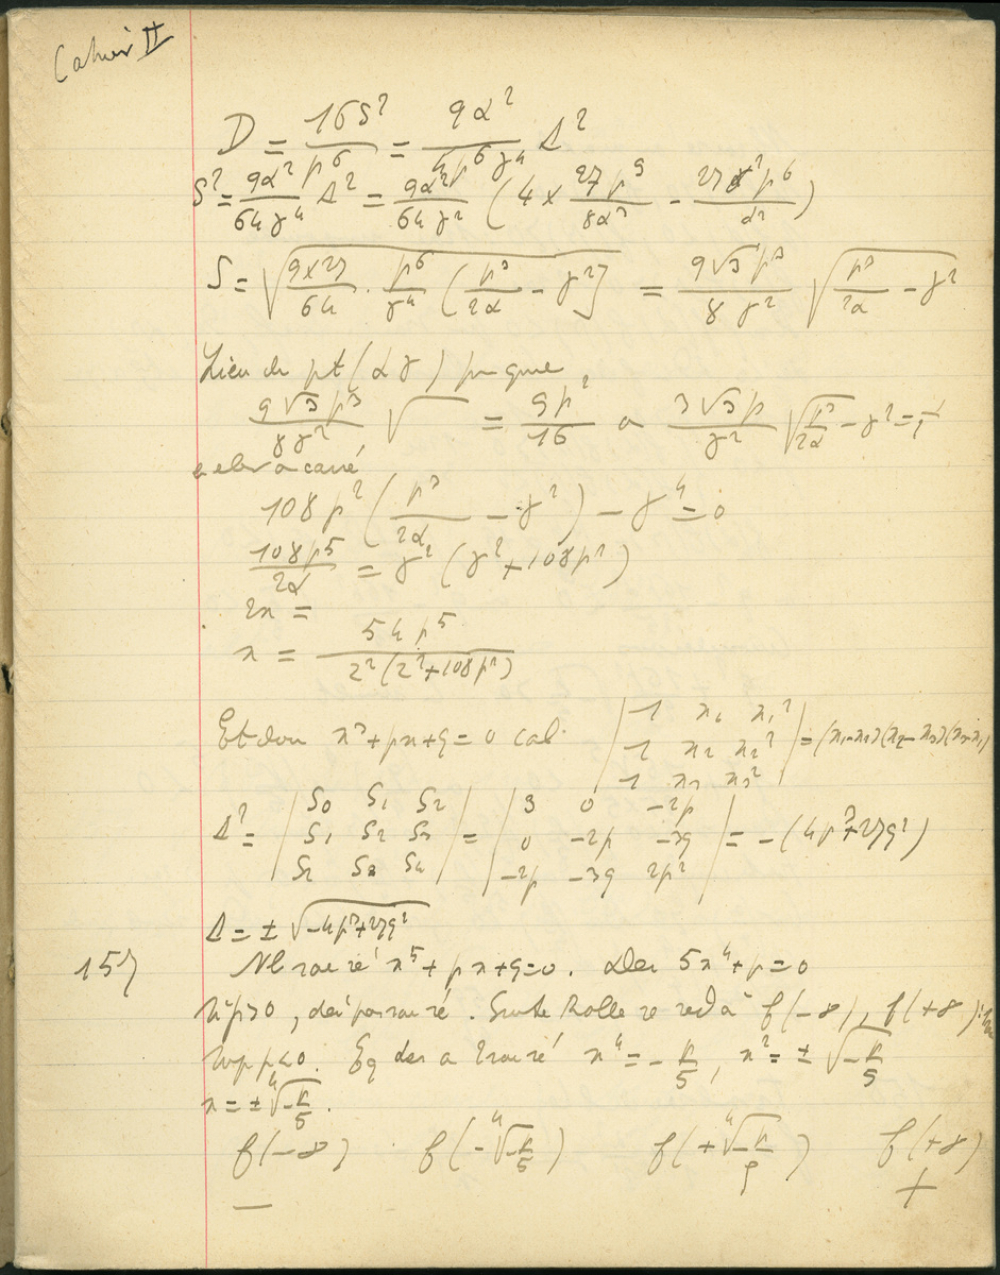 Cahier II
D = 16S² / p⁶ = 9α² / 4p⁶γ⁴ Δ²
S² = 9α² / 64γ⁴ Δ² = 9α² / 64γ² (4 × 27p⁹ / 8α³ - 27γ²p⁶ / α²)
S = √(9×27 / 64 · p⁶ / γ⁴ (p³ / 2α - γ²)) = 9√3p³ / 8γ² √(p³ / 2α - γ²)
Lieu du pt (α γ) pr que
9√3p³ / 8γ² √ = 9p² / 16 3√3p / γ² √(p³ / 2α - γ²) =
carré
108p² (p³ / 2α - γ²) - γ⁴ = 0
108p⁵ / 2α = γ² (γ² + 108p²)
2x =
x = 54p⁵ / z²(z² + 108p²)
Et don x³ + px + q = 0 cal. | 1 x₁ x₁² | 1 x₂ x₂² | 1 x₃ x₃² | = (x₁-x₂)(x₂-x₃)(x₃-x₁)
Δ² = | S₀ S₁ S₂ | S₁ S₂ S₃ | S₂ S₃ S₄ | = | 3 0 -2p | 0 -2p -3q | -2p -3q 2p² | = -(4p³+27q²)
Δ = ± √-4p³+27q²
157 Nb rac ré x⁵ + px + q = 0. Der 5x⁴ + p = 0
Si p>0, der pas rac ré. Suite Rolle se red à f(-∞), f(+∞)
Supp p<0. Eq der a 2 rac ré x⁴ = - p/5, x² = ± √-p/5
x = ± ⁴√-p/5.
f(-∞) f(-⁴√-p/5) f(+⁴√-p/5) f(+∞)
— +